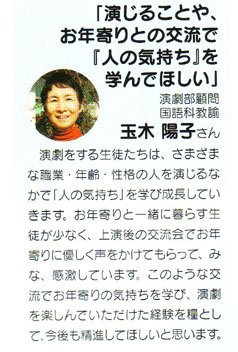 「演じることや、
お年寄りとの交流で
『人の気持ち』を
学んでほしい」
演劇部顧問
国語科教諭
玉木 陽子さん
演劇をする生徒たちは、さまざま
な職業・年齢・性格の人を演じるな
かで「人の気持ち」を学び成長してい
きます。お年寄りと一緒に暮らす生
徒が少なく、上演後の交流会でお年
寄りに優しく声をかけてもらって、み
な、感激しています。このような交
流でお年寄りの気持ちを学び、演劇
を楽しんでいただけた経験を糧とし
て、今後も精進してほしいと思います。